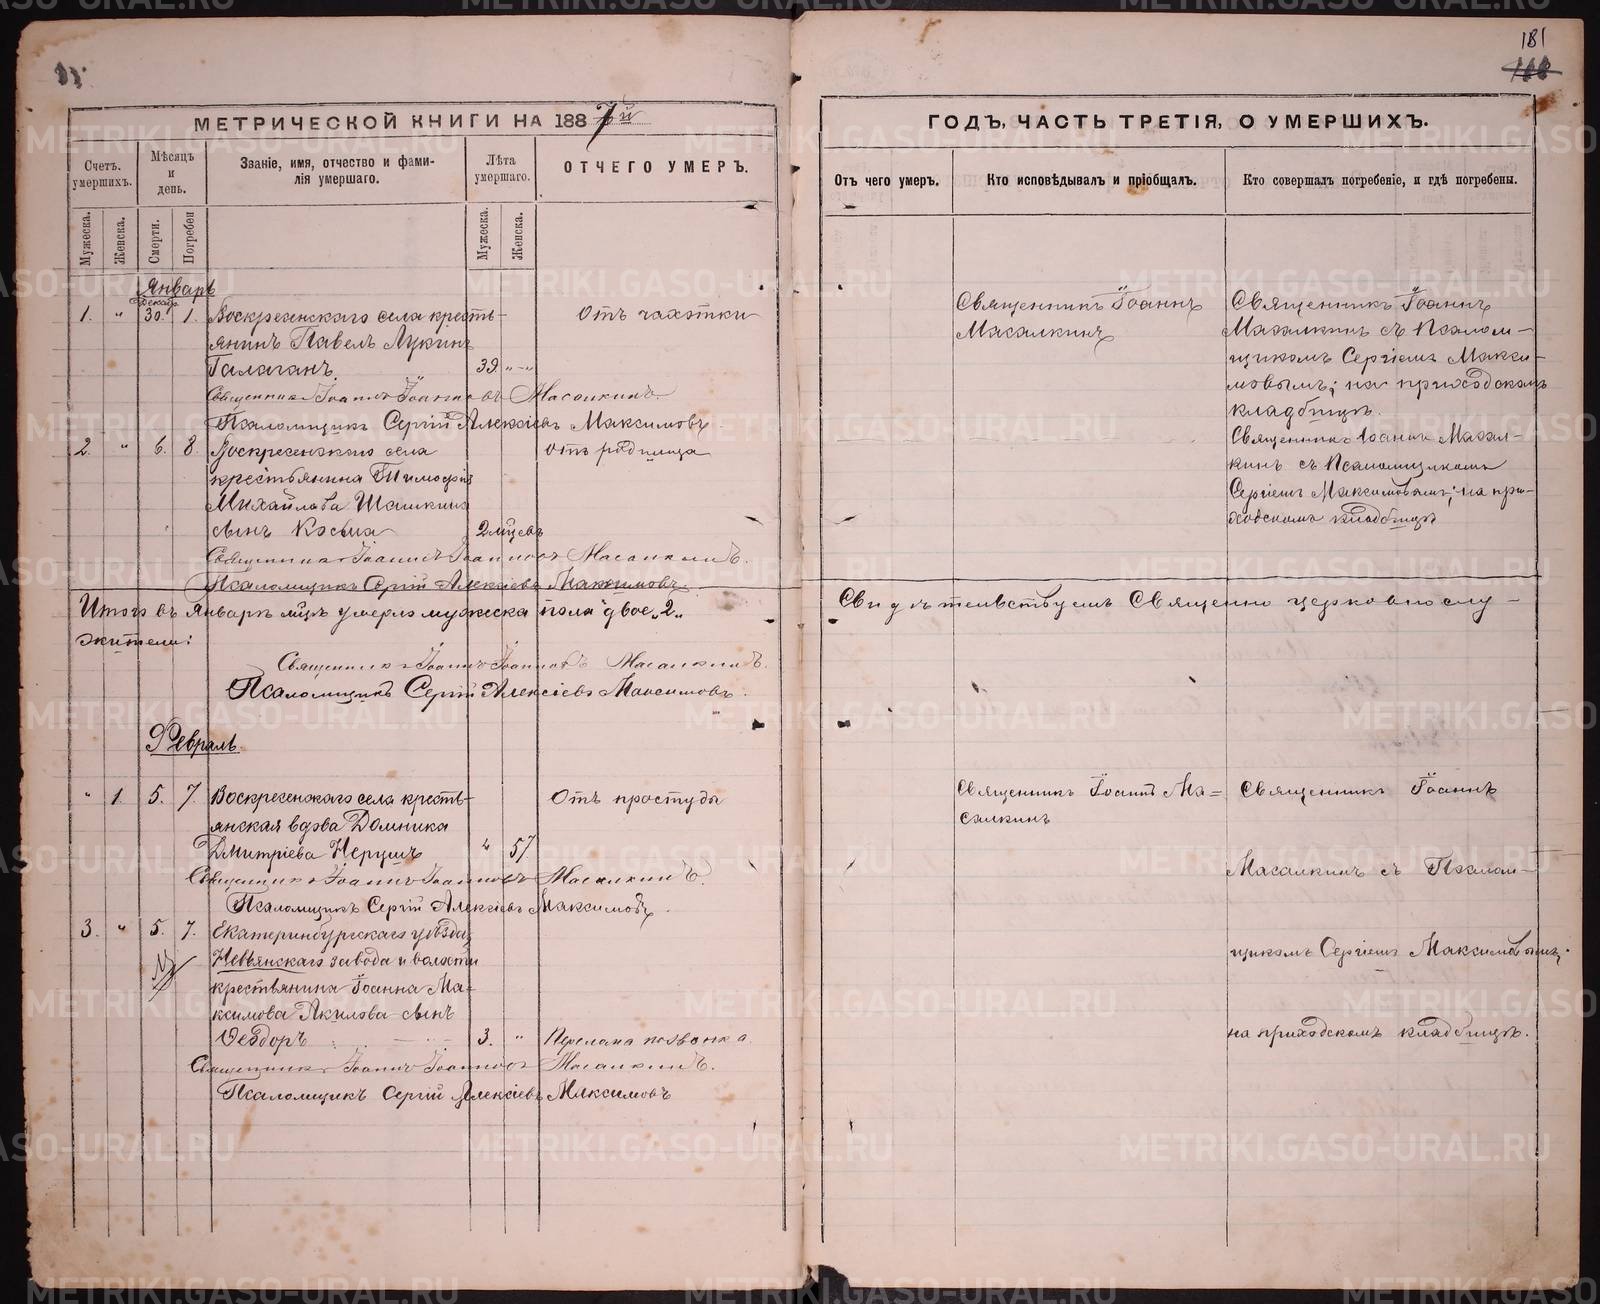 181
МЕТРИЧЕСКОЙ КНИГИ НА 1887й
ГОДЪ, ЧАСТЬ ТРЕТІЯ, О УМЕРШИХЪ.
Счетъ умершихъ.
Мѣсяцъ и день.
Званіе, имя, отчество и фамилія умершаго.
Лѣта умершаго.
ОТЧЕГО УМЕРЪ.
Мужеска.
Женска.
Смерти.
Погребен
Мужеска.
Женска.
Отъ чего умеръ.
Кто исповѣдывалъ и пріобщалъ.
Кто совершалъ погребеніе, и гдѣ погребены.
Январь
Декабр.
1. " 30. 1. Воскресенскаго села кресть-
янинъ Павелъ Лукинъ
Галаганъ. 39 "-"
Отъ чахотки
Священникъ Іоаннъ Іоанновъ Масалкинъ.
Псаломщикъ Сергій Алексіевъ Максимовъ.
Священникъ Іоаннъ
Масалкинъ
Священникъ Іоаннъ
Масалкинъ съ Псалом-
щикомъ Сергіемъ Макси-
мовымъ; на приходскомъ
кладбищѣ.
2. " 6. 8. Воскресенскаго села
крестьянина Тимофея
Михайлова Шашкина
сынъ Косьма 2 мцевъ
отъ родимца
Священникъ Іоаннъ Іоанновъ Масалкинъ.
Псаломщикъ Сергій Алексіевъ Максимовъ.
Священникъ Іоаннъ Масал-
кинъ съ Псаломщикомъ
Сергіемъ Максимовымъ; на при-
ходскомъ кладбищѣ
Итого въ Январѣ мцѣ умерло мужеска пола двое „2„
Свидѣтельствуемъ Священно церковнослу-
жители:
Священникъ Іоаннъ Іоанновъ Масалкинъ.
Псаломщикъ Сергій Алексіевъ Максимовъ.
Февраль.
" 1. 5. 7. Воскресенскаго села кресть-
янская вдова Домника
Дмитріева Нерушъ " 57
Отъ простуды
Священникъ Іоаннъ Іоанновъ Масалкинъ.
Псаломщикъ Сергій Алексіевъ Максимовъ.
Священникъ Іоаннъ Ма=
салкинъ
Священникъ Іоаннъ
Масалкинъ съ Псалом-
щикомъ Сергіемъ Максимовымъ;
на приходскомъ кладбищѣ.
3. " 5. 7. Екатеринбургскаго уѣзда,
Невьянскаго завода и волости
крестьянина Іоанна Ма-
ксимова Акилова сынъ
Ѳеодоръ 3. "
Священникъ Іоаннъ Іоанновъ Масалкинъ.
Псаломщикъ Сергій Алексіевъ Максимовъ
METRIKI.GASO-URAL.RU